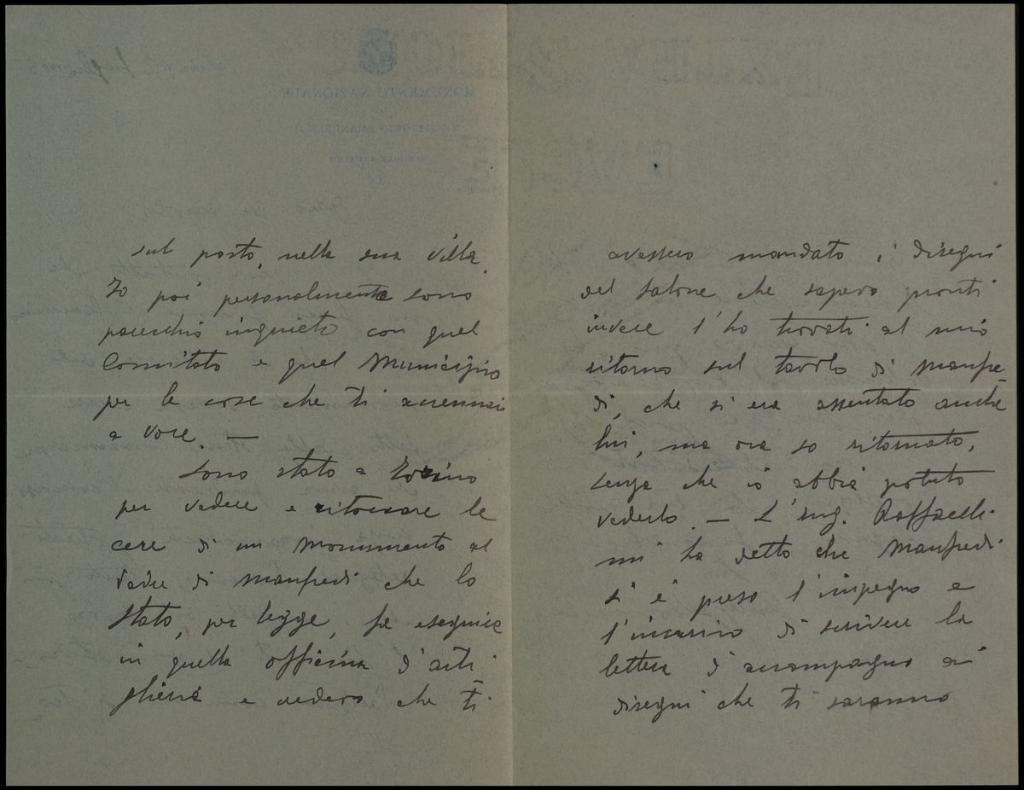 sul posto, nella sua villa.
Io poi personalmente sono
parecchio inquieto con quel
Comitato e quel Municipio
per le cose che ti accennai
a voce. —
Sono stato a Torino
per vedere e ritoccare le
cere di un monumento al
Padre di Manfredi che lo
Stato, per legge, fa eseguire
in quella officina d'arti
glieria e credevo che ti
avessero mandato i disegni
del Salone che sapevo pronti
invece l'ho trovati al mio
ritorno sul tavolo di Manfre
di, che si era assentato anche
lui, ma ora so ritornato,
senza che io abbia potuto
vederlo. — L'ing. Raffaelli
mi ha detto che Manfredi
si è preso l'impegno e
l'incarico di scrivere la
lettera d'accompagno ai
disegni che ti saranno
MONUMENTO NAZIONALE